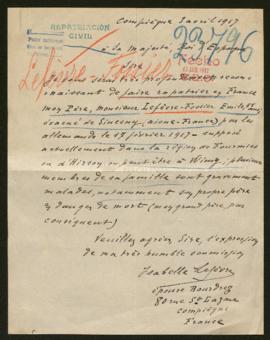 Compiègne 2 avril 1917
REPATRIACIÓN
CIVIL
23796
à sa Majesté, Roi d'Espagne
Sire
Lefèvre Fossier
de faire rapatrier en France
mon Père, monsieur Lefèvre-Fossier Emile,
évacué de Sinceny, aisne-France) par les
allemands le 17 février 1917 - supposé
actuellement dans la région de Fourmies
ou d'Hirson ou peut être à Wimy, plusieurs
membres de sa famille sont gravement
malades, notamment son propre père
en danger de mort (mon grand père, par
conséquent)
Veuillez agréer Sire, l'expression
de ma très humble soumission
Isabelle Lefèvre
épouse
80 rue St Lazare
Compiègne
France